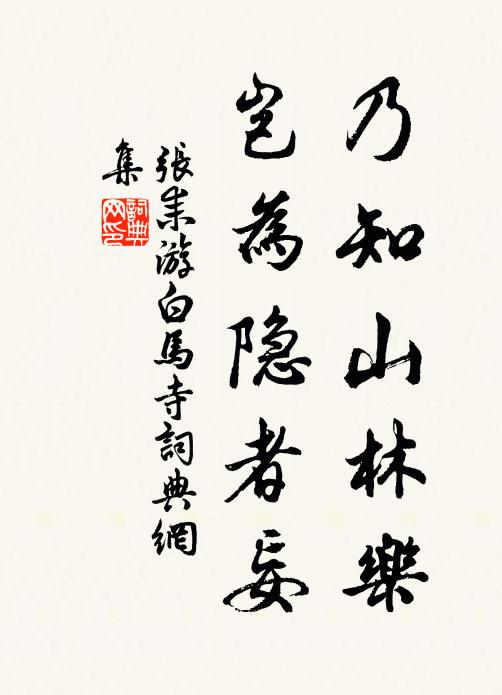 乃知山林樂
岂為隐者妄
張耒游白馬寺詞典網
集
詞典
网印